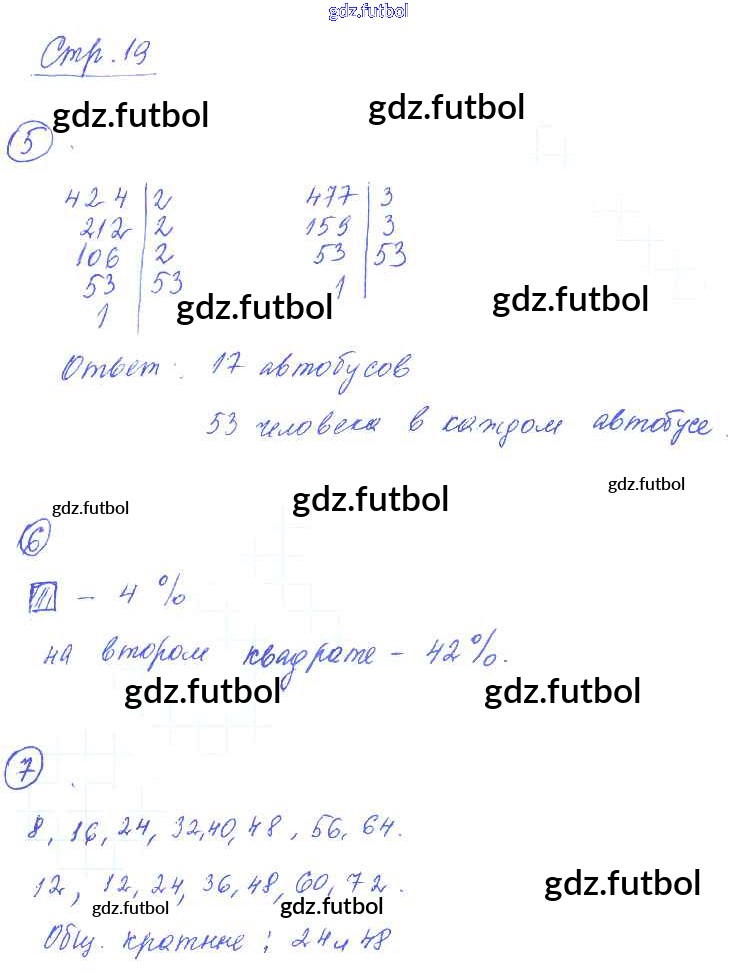 gdz.futbol
Стр. 19
gdz.futbol gdz.futbol
5
424 | 2 477 | 3
212 | 2 159 | 3
106 | 2 53 | 53
53 | 53 1
1
gdz.futbol gdz.futbol
Ответ: 17 автобусов
53 человека в каждом автобусе.
gdz.futbol gdz.futbol gdz.futbol
6
– 4 %
на втором квадрате – 42%.
gdz.futbol gdz.futbol
7
8, 16, 24, 32, 40, 48, 56, 64.
12, 12, 24, 36, 48, 60, 72.
gdz.futbol gdz.futbol gdz.futbol
Общ. кратные: 24 и 48